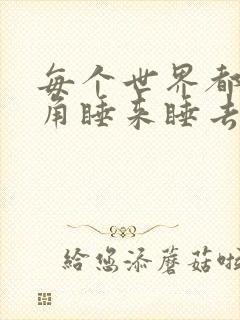 每个世界都
角睡来睡去
给您添蘑菇啦